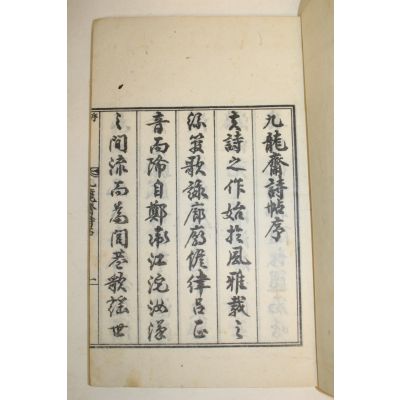 九龍齋詩帖序
夫詩之作始於風雅載之
歌詠廊廟偕律呂正
音而降自鄭衛江汝漢
之間流而爲閭巷歌謠世
序
九龍齋
一